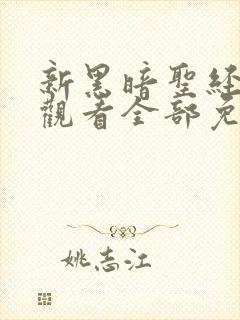 新黑暗聖經
觀看全部免
姚志江